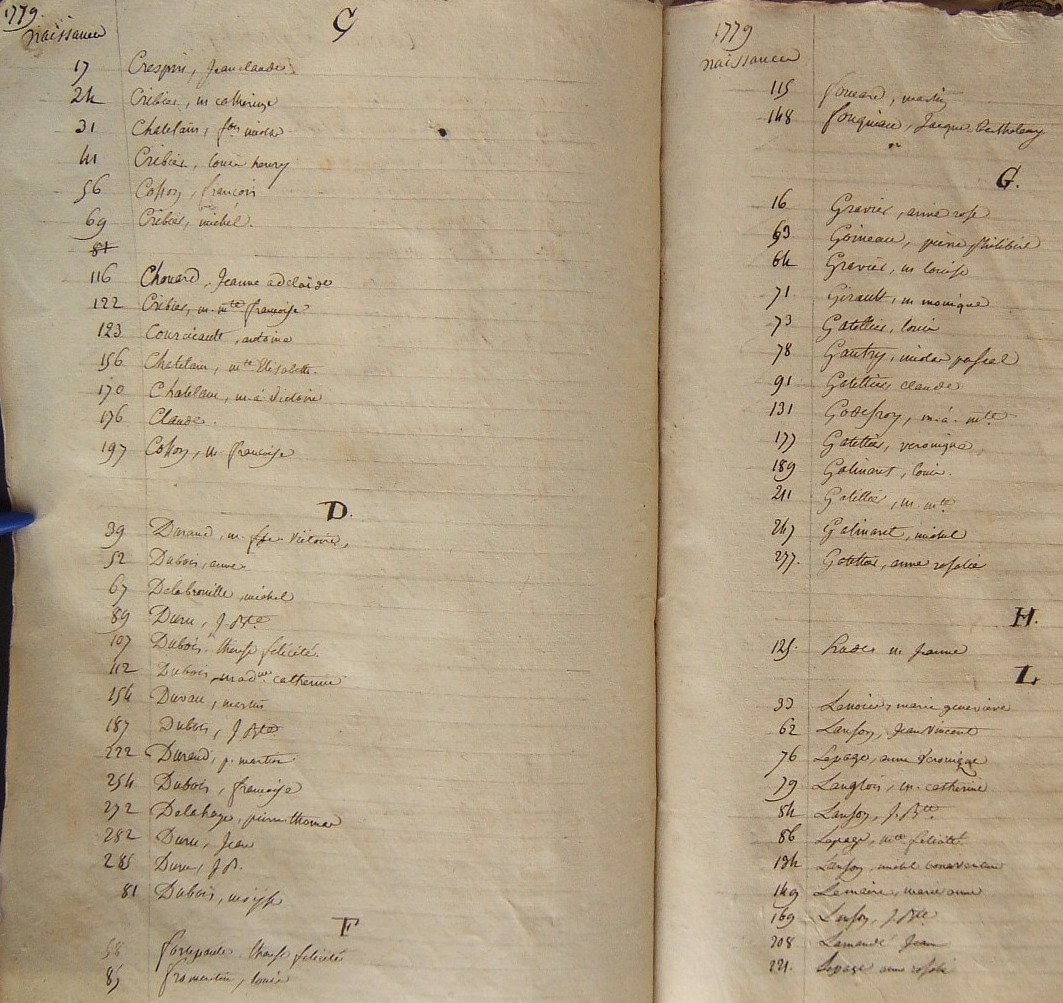 1779
naissances
C
17 Crespin, Jean claude
24 Cribier, m catherine
31 Chatelain, fois nicolas
41 Cribier, louis henry
56 Cosson, francois
69 Cribier, michel.
81
116 Chouard, Jeanne adelaide
122 Cribier, m. mte francoise
123 antoine
156 Chatelain, mte Elisabette.
170 Chatelain, m. a. victoire
176 Claude.
197 Cosson, m. francoise
D.
39 Durand, m. victoire,
52 Dubois, anne
67 Delabrouille, michel
89 Duru, J. Bte
107 Dubois, therese felicité.
112 Dubois, catherine
154 Duvau, martin
187 Dubois, J. Bte
222 Durand, p. martin
254 Dubois, francoise
272 Delahaye, pierre thomas
282 Duru, Jean
285 Duru, J. B.
81 Dubois, moyse
F
58 therese felicité
85 fromentin, louis
1779
naissances
115 martin
148 fougneau, Jacques Bartholemy
G.
16 Gravier, anne rose
63 Goineau, pierre philibert
64 Gravier, m louise
71 Girault, m monique
73 Gatellier, louis
78 Gautry, nicolas pascal
91 Gatellier, claude
131 Godefroy, m. a. mte
177 Gatellier, veronique,
189 Galinaret, louis.
211 Gatellier, m. mte
247 Galinaret, michel
277. Gatellier, anne rosalie
H.
125. m Jeanne
L.
33 marie genevieve
62 Lanson, Jean Vincent
76 Lepage, anne veronique
79 Langlois, m. catherine
84 Lanson, J. Bte
86 Lepage, mte felicité.
134 Lanson, michel bonaventure
149 Lemaire, marie anne
169 Lanson, J. Bte
208 Lamandé Jean
221. Lepage anne rosalie